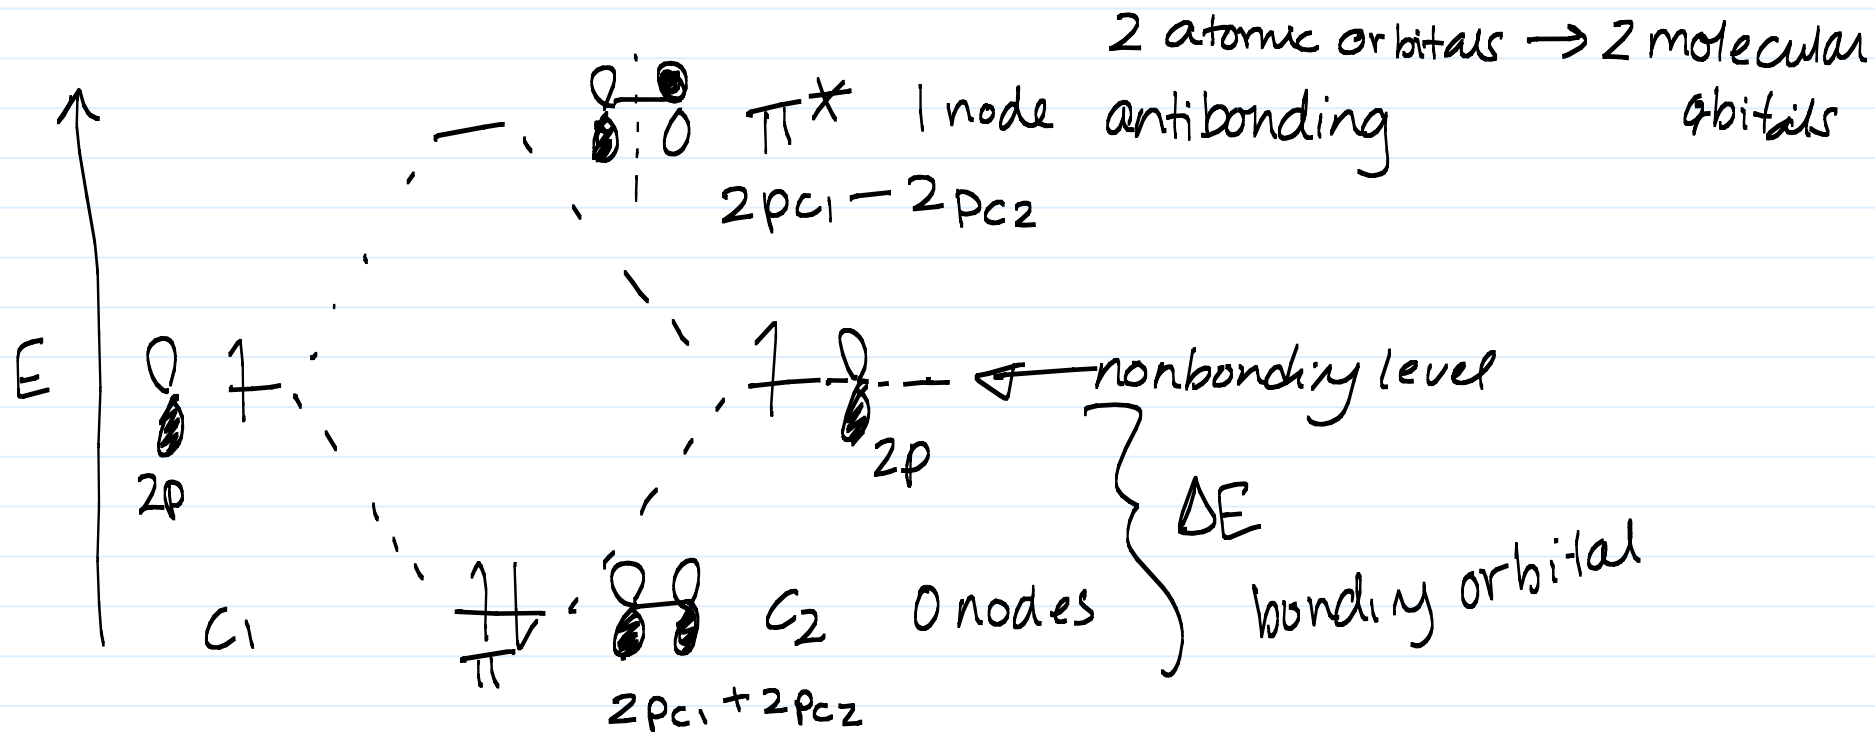 2 atomic orbitals → 2 molecular
orbitals
π* 1 node antibonding
2pc1 − 2pc2
E
nonbonding level
2p
2p
ΔE
bonding orbital
C1
π
C2 0 nodes
2pc1 + 2pc2